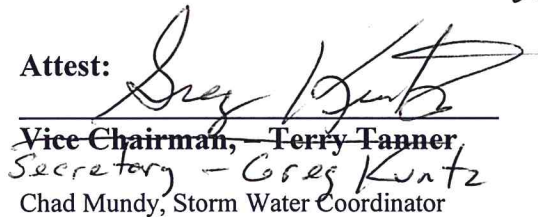 Attest:
Greg Kuntz
Vice Chairman, – Terry Tanner
Secretary – Greg Kuntz
Chad Mundy, Storm Water Coordinator